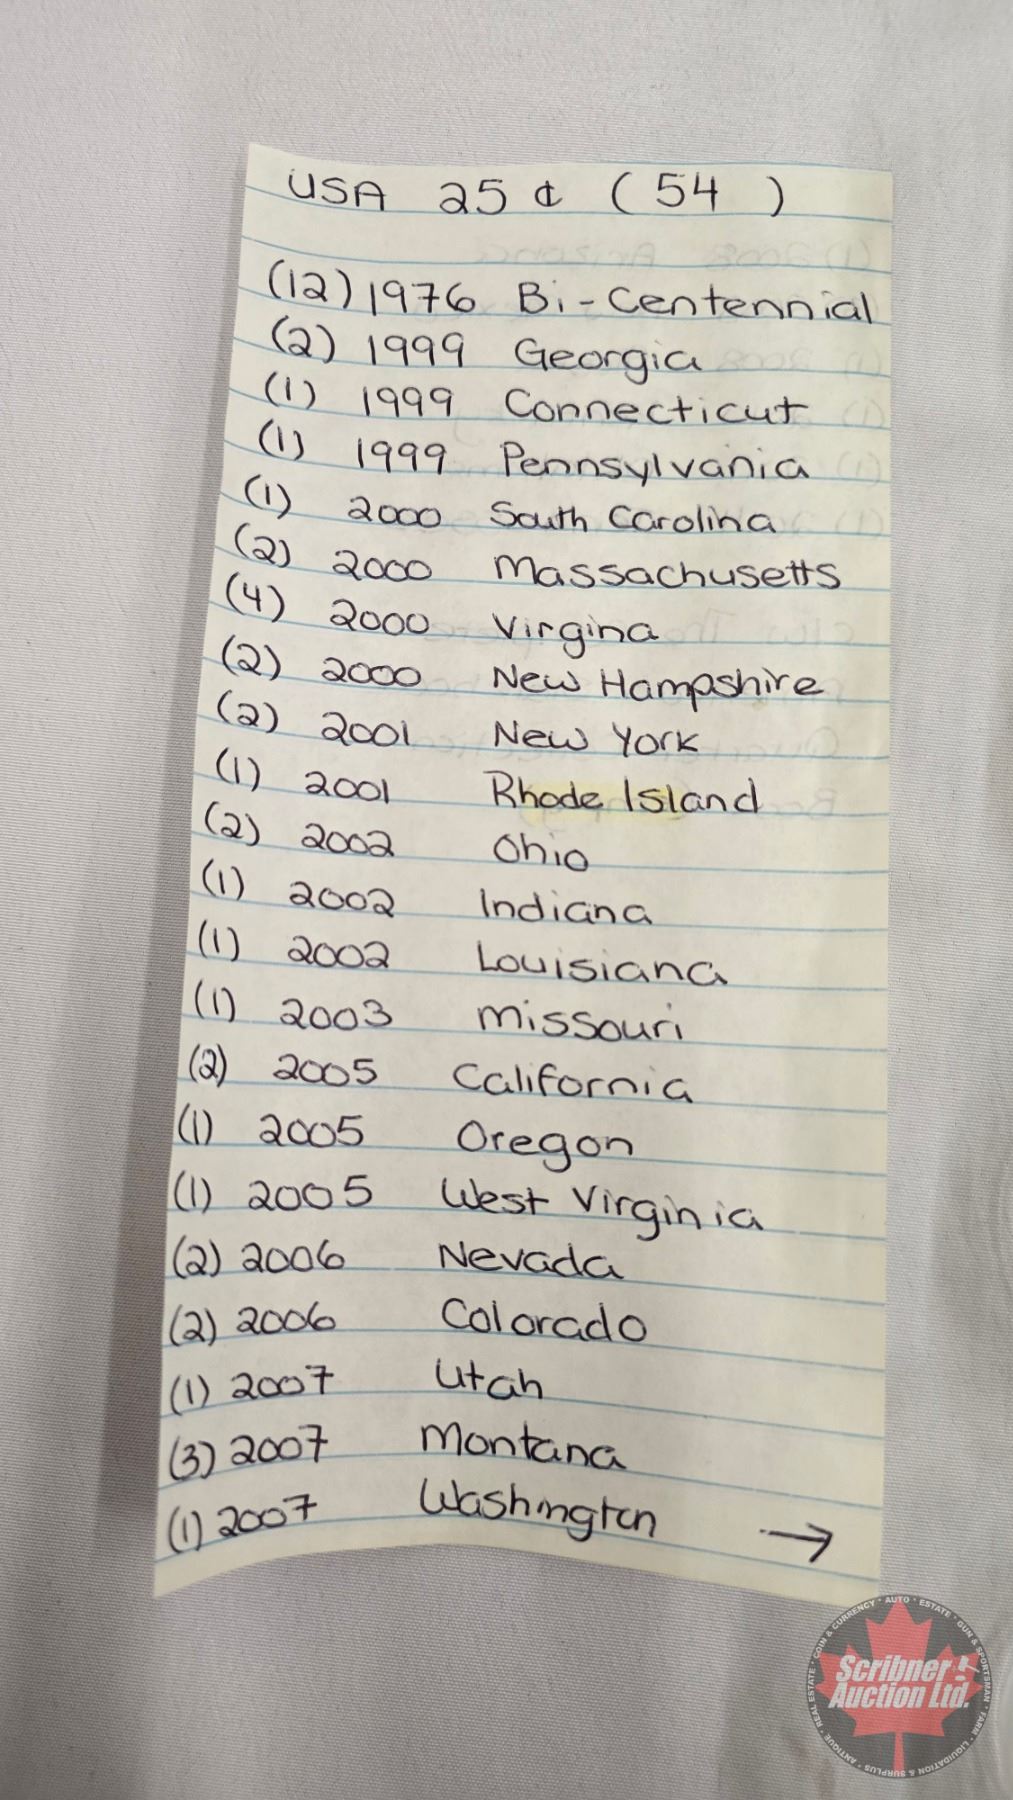 USA 25¢ (54)
(12) 1976 Bi-Centennial
(2) 1999 Georgia
(1) 1999 Connecticut
(1) 1999 Pennsylvania
(1) 2000 South Carolina
(2) 2000 Massachusetts
(4) 2000 Virgina
(2) 2000 New Hampshire
(2) 2001 New York
(1) 2001 Rhode Island
(2) 2002 Ohio
(1) 2002 Indiana
(1) 2002 Louisiana
(1) 2003 Missouri
(2) 2005 California
(1) 2005 Oregon
(1) 2005 West Virginia
(2) 2006 Nevada
(2) 2006 Colorado
(1) 2007 Utah
(3) 2007 Montana
(1) 2007 Washington →
Scribner
Auction Ltd.
REAL ESTATE • COIN & CURRENCY • AUTO • ESTATE • GUN & SPORTSMAN • FARM • LIQUIDATION & SURPLUS • ANTIQUE •